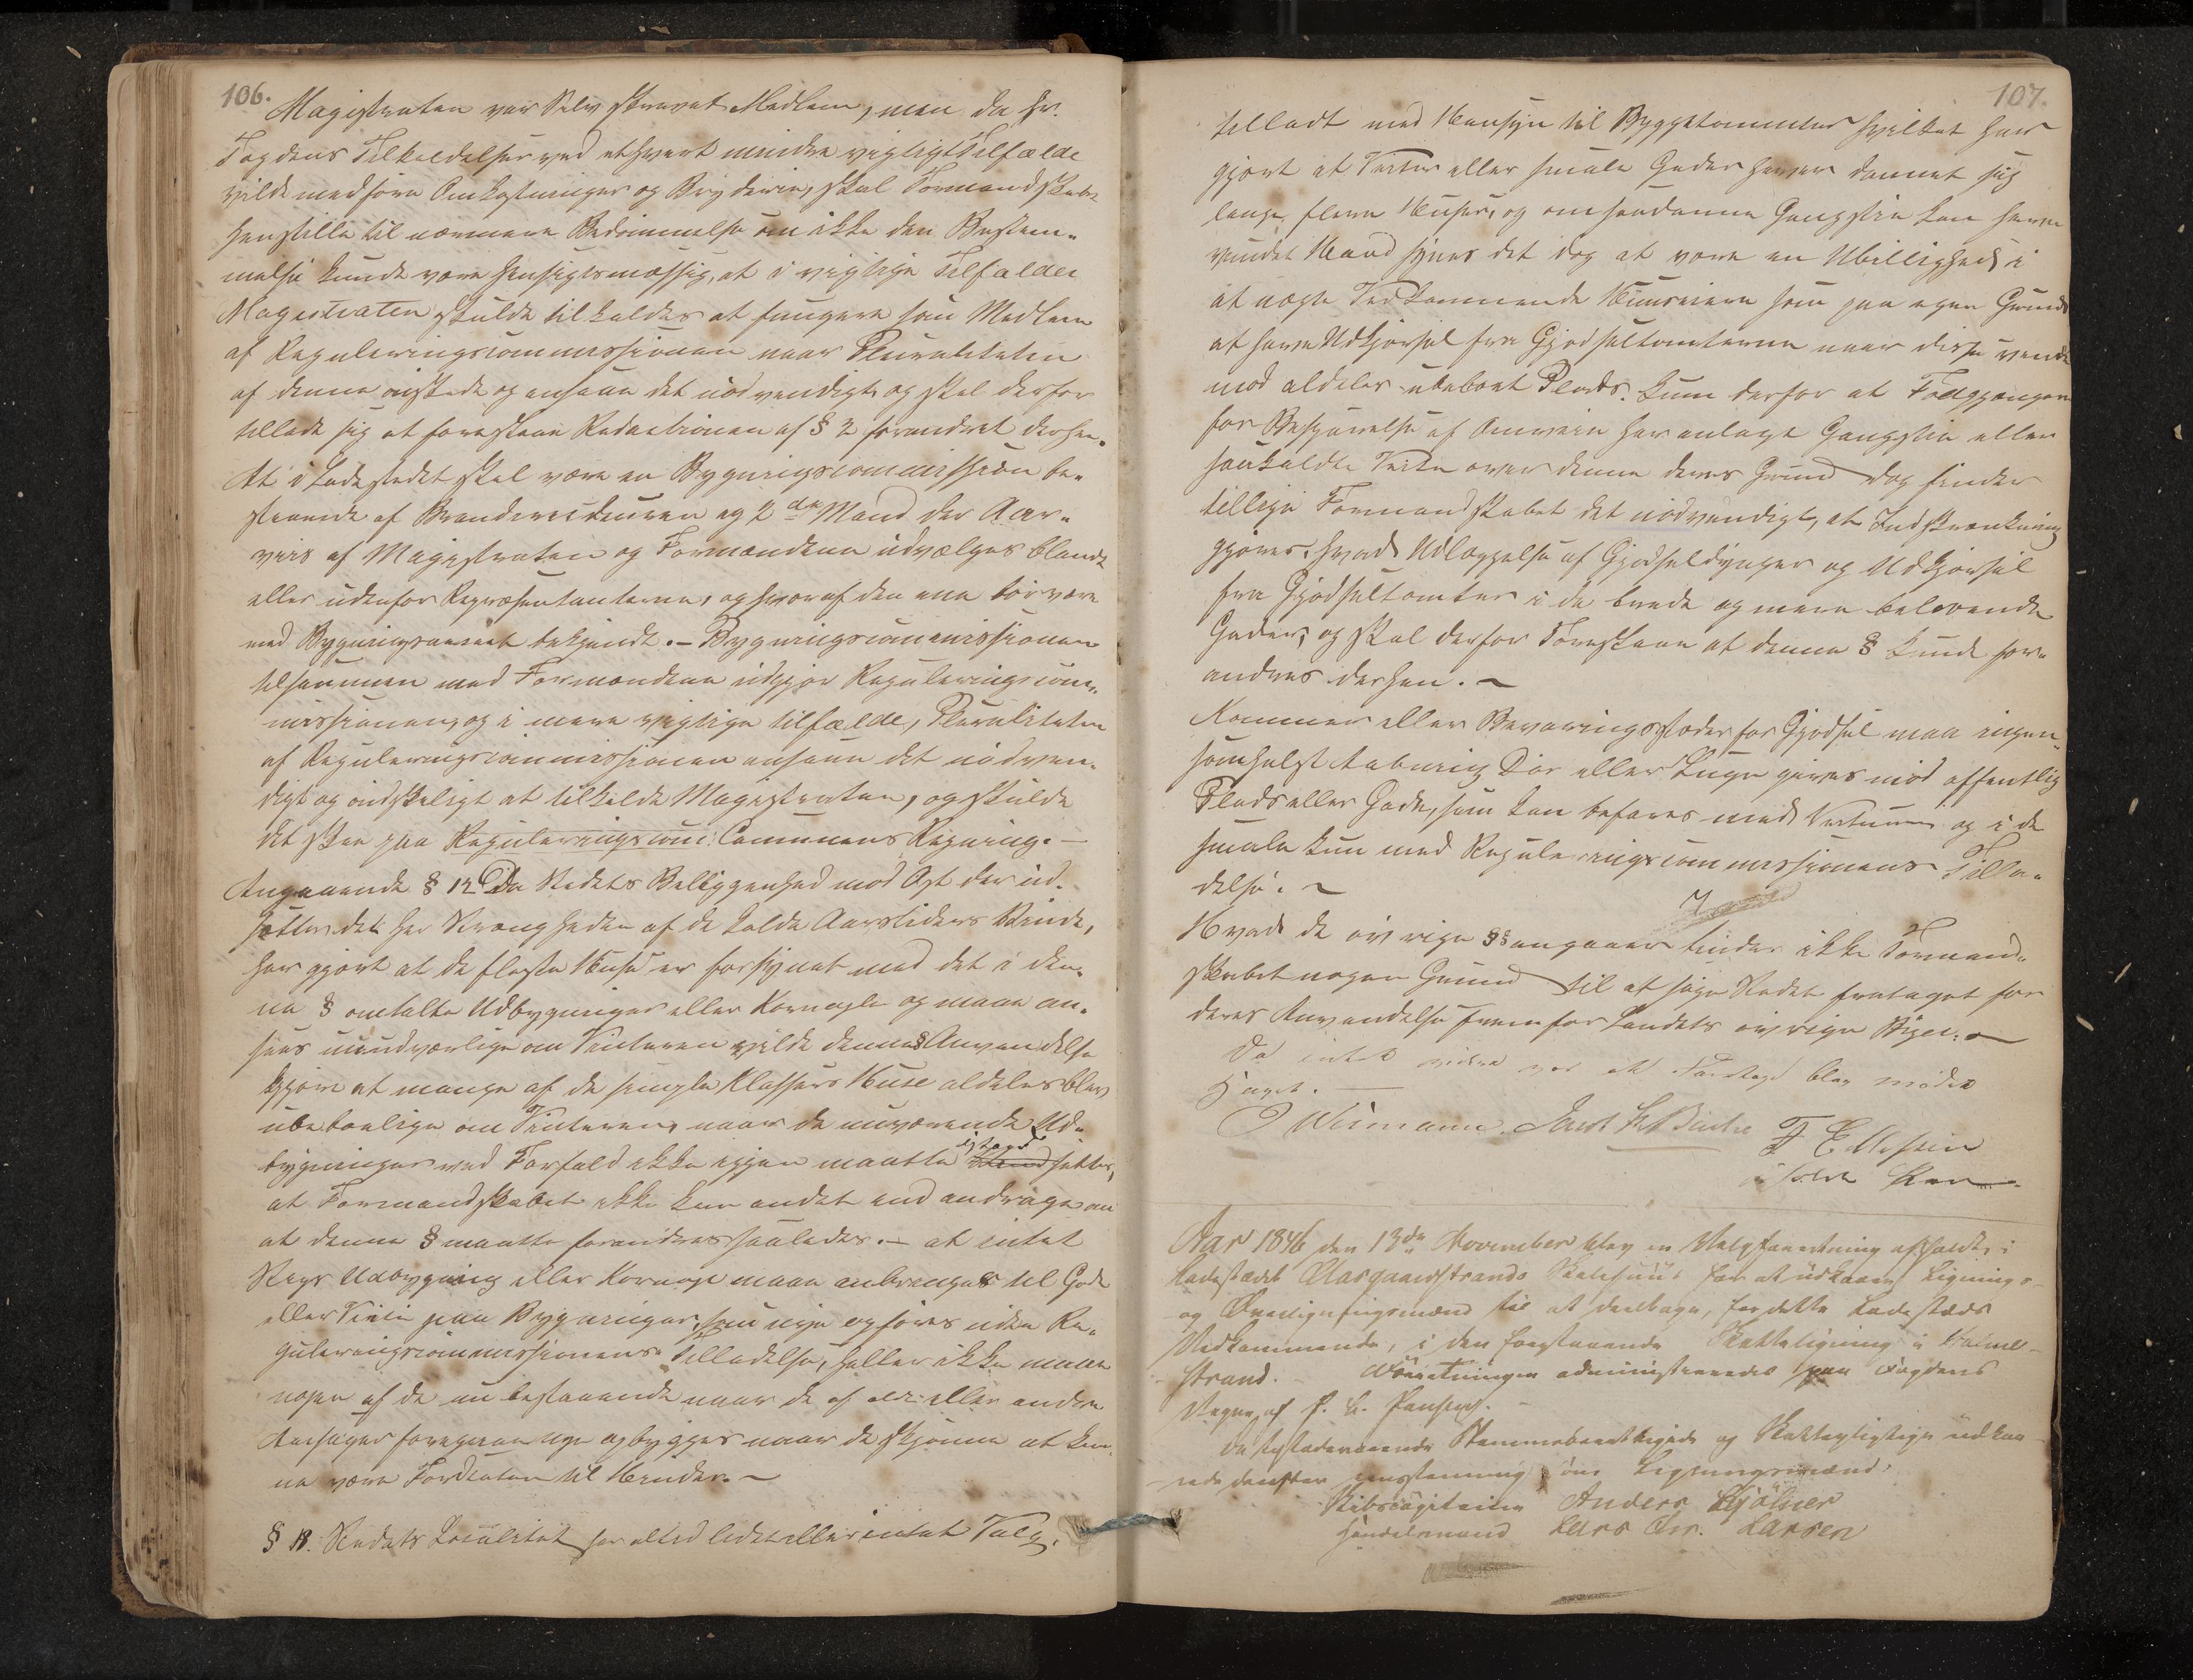 106.
Magistraten var Selv skrevet Medlem, men da Hr.
Fogdens Tilkaldelser ved ethvert mindre vigtigt Tilfælde
vilde medføre Omkostninger og Bryderie, skal Formandskabet
henstille til nærmere Bedømmelse om ikke den Bestem-
melse kunde være hensigtsmæssig, at i vigtige Tilfælder
Magistraten skulde tilkaldes at fungere som Medlem
af Reguleringscommissionen naar Pluraliteten
af denne ønskede og ansaae det nödvendigt og skal derfor
tillade sig at foreslaae Redactionen af § 2 forandret derhen.
At i Ladestedet skal være en Bygningscommission be-
staaende af Branddirecteuren og 2de Mænd der Aar-
viis af Magistraten og Formændene udvælges blandt
eller udenfor Repræsentanterne, og hvoraf den ene bör være
med Bygningsvæsenet bekjendt. - Bygningscommissionen
tilsammen med Formændene udgjør Reguleringscom-
missionen, og i mere vigtige tilfælde, Pluraliteten
af Reguleringscommissionen ansaae det nödven-
digt og ønskeligt at tilkalde Magistraten, og skulde
det skee paa Reguleringscom: Communens Regning. -
Angaaende § 12 Da Stedets Beliggenhed mod Øst der ud-
sætter det her Strengheden af de kolde Aarstiders Vinde,
har gjort at de fleste Huse er forsynet med det i den-
ne § omtalte Udbygninger eller Kornapper og maae an-
sees uundværlige om Vinteren vilde denne § Anvendelse
gjøre at mange af de simple Klassers Huse aldeles blev
ubeboelige om Vinteren, naar de nuværende Ud-
bygninger ved Forfald ikke igjen maatte istand sættes,
at Formandskabet ikke kan andet end andrage om
at denne § maatte forandres saaledes. - at intet
Slags Udbygning eller Kornap maae anbringes til Gade
eller Veie paa Bygninger, som nye opføres uden Re-
guleringscommissionens Tilladelse, heller ikke maae
nogen af de nu bestaaende naar de af eller andre
Aarsager foregaae nye opbygges naar de skjønne at kun-
ne være Fordeelen til Hinder. -
§ 18. Stedets Localitet har altid lidet eller intet Valg
107.
tilladt med Hensyn til Byggetomter hvilket har
gjort at Veiter eller smale Gader haver dannet sig
langs flere Huse, og omsaadanne Gangstie kan have
vundet Hævd synes det dog at være en Ubillighed i
at nægte Vedkommende Huuseiere som paa egen Grund
at have Udkjørsel fra Gjødseltomterne naar disse vende
mod aldeles ubeboet Plads. kun derfor at Fodgjængere
for Besparelse af Omveie har anlagt Gangstie eller
saakaldte Veite over denne deres Grund dog finder
tillige Formandskabet det nödvendigt, at Indskrænkning
gjøres, hvad Udlæggelse af Gjødseldynger og Udkjørsel
fra Gjødseltomter i de brede og mere beboende
Gader, og skal derfor Foreslaae at denne § kunde for-
andres derhen. -
Kammer eller Bevaringssteder for Gjødsel maa ingen-
somhelst Aabning Dør eller Luge gives mod offentlig
Plads eller Gade, som kan befares med Veturer og i de
smale kun med Reguleringscommissionens Tilla-
delse. -
Hvad de øvrige §§ angaaer finder ikke Formand-
skabet nogen Grund til at søge Stedet fritaget for
deres Anvendelse fremfor Landets øvrige Byer. -
Da intet videre var at Foretage blev mødet
hævet. -
Wiimann. Jacob
F Ellefsen
Aar 1846 den 13de November blev en Valgforretning afholdt i
Ladestædet Aasgaardstrands Skolehuus for at udkaare Lignings-
og Overligningsmænd til at deeltage, for dette Ladestæds
Vedkommende, i den forestaaende Skatteligning i Holme-
strand. - Forretningen administreredes paa Fogdens
Vegne af P. C. Paulsen. -
De tilstædeværende Stemmeberettigede og Skattepligtige udkaa-
rede derefter eenstemmig som Ligningsmænd:
Skibscapitaine Anders Kjølner
Handelsmand Lars Chr. Larsen